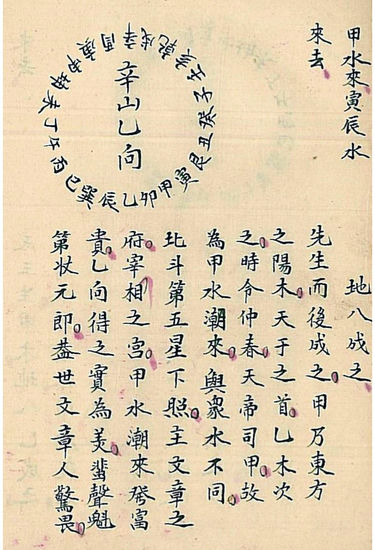 甲水來寅辰水
來去
辛山乙向
壬子癸丑艮寅甲卯乙辰巽巳丙午丁未坤申庚酉辛戌乾亥
地八成之
先生而後成之甲乃東方
之陽木天干之首乙木次
之時令仲春天帝司甲故
為甲水潮來與衆水不同
北斗第五星下照主文章之
府宰相之宮甲水潮來發富
貴乙向得之實為美蜚聲魁
第狀元郎蓋世文章人驚畏